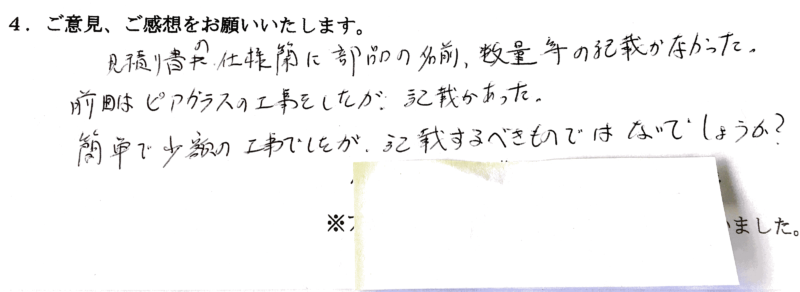 4．ご意見、ご感想をお願いいたします。
見積り書の仕様箇に部品の名前、数量等の記載がなかった。
前回はピアグラスの工事をしたが、記載があった。
簡単で少額の工事でしたが、記載するべきものではないでしょうか？
※
いました。